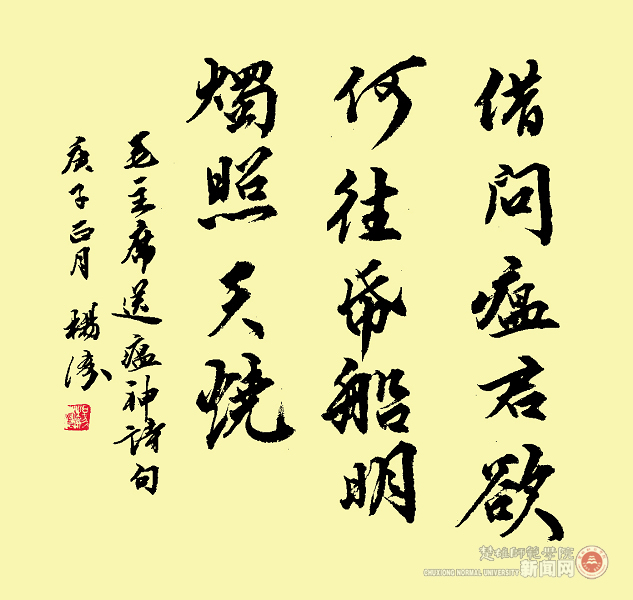 借问瘟君欲
何往帋船明
燭照天燒
毛主席送瘟神詩句
庚子正月 楊
楚雄師範學院
CHUXIONG NORMAL UNIVERSITY 新闻网